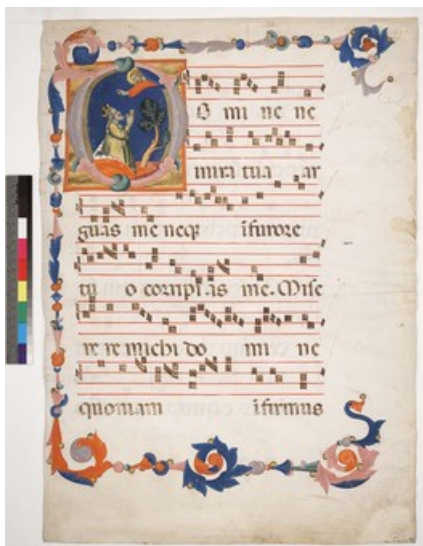 O mi ne ne
in ira tua ar
guas me neq ī furore
tu o corripi as me. Mise
re re michi do mi ne
quoniam īfirmus